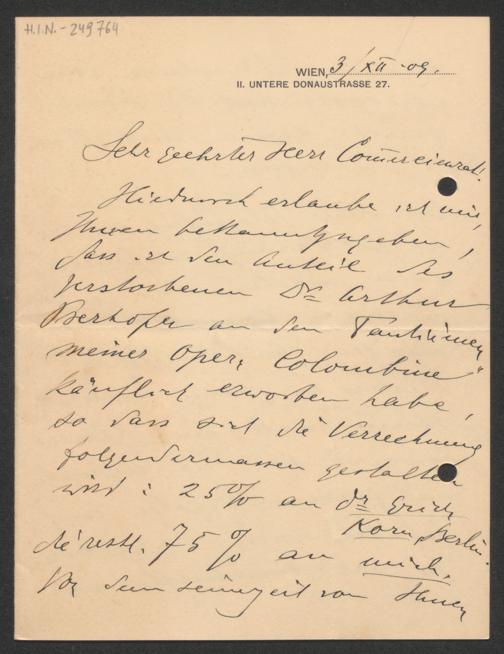 H.I.N.-249764
WIEN, 3/XII-09.
II. UNTERE DONAUSTRASSE 27.
Sehr geehrter Herr Commercienrat!
Hiedurch erlaube ich mir,
Ihnen bekanntzugeben,
dass ich den Anteil des
verstorbenen Dr Arthur
Berhofer an den Tantièmen
meiner Oper „Colombine“
käuflich erworben habe,
so dass sich die Verrechnung
folgendermassen gestalten
wird: 25% an Dr Erich
Korn, Berlin.
die restl. 75% an mich.
Von dem seinerzeit von Ihnen